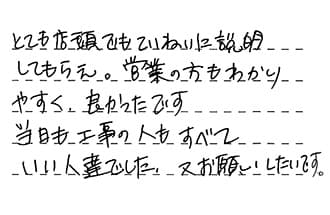 とても店頭でもていねいに説明
してもらえ。営業の方もわかり
やすく、良かったです
当日も工事の人もすべて
いい人達でした、又お願いしたいです。